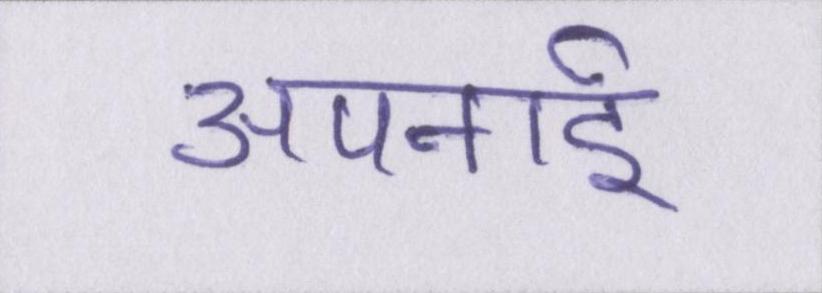 अपनाई